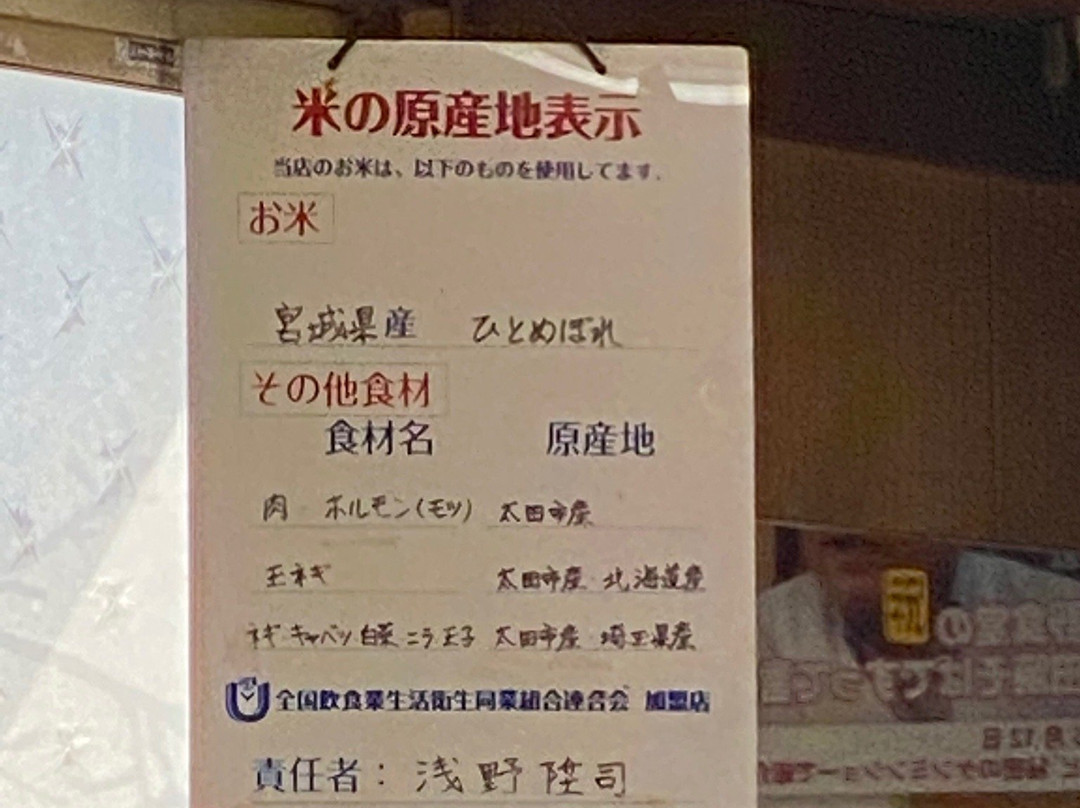 米の原産地表示
当店のお米は、以下のものを使用してます。
お米
宮城県産 ひとめぼれ
その他食材
食材名 原産地
肉 ホルモン(モツ) 太田市産
玉ネギ 太田市産 北海道産
ネギ キャベツ 白菜 ニラ 玉子 太田市産 埼玉県産
全国飲食業生活衛生同業組合連合会 加盟店
責任者: 浅野 陞司